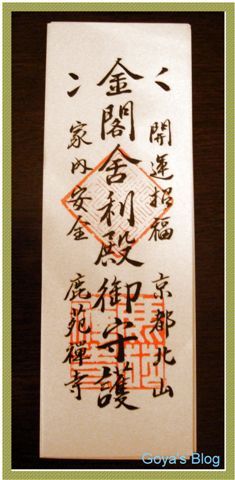 開運招福 京都北山
金閣舎利殿御守護
家内安全 鹿苑禅寺
Goya's Blog